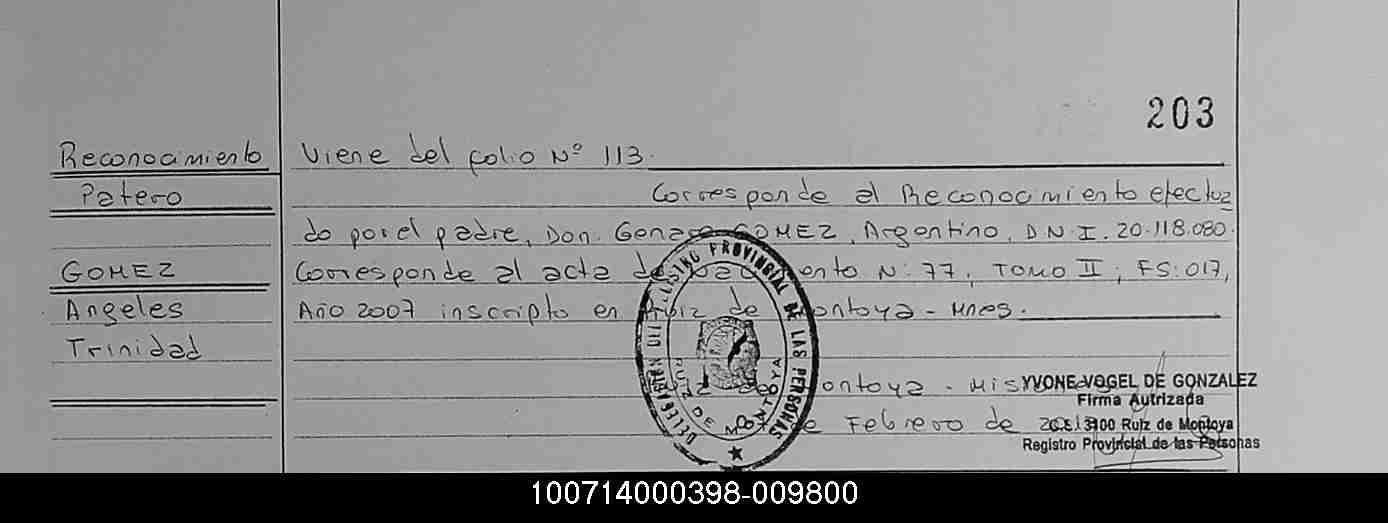 203
Reconocimiento
Patero
GOMEZ
Angeles
Trinidad
Viene del folio Nº 113.
Corresponde al Reconocimiento efectua
do por el padre, Don. Genaro GOMEZ, Argentino, D.N.I. 20.118.080.
Corresponde al acta de N: 77, TOMO II, FS: 017,
Año 2007 inscripto en Ruiz de Montoya - Mnes.
ontoya - Misiones
Febrero de
DELEGACION DEL REGISTRO PROVINCIAL DE LAS PERSONAS
RUIZ DE MONTOYA
YVONE VOGEL DE GONZALEZ
Firma Autrizada
C.S. 3100 Ruiz de Montoya
Registro Provincial de las Personas
100714000398-009800